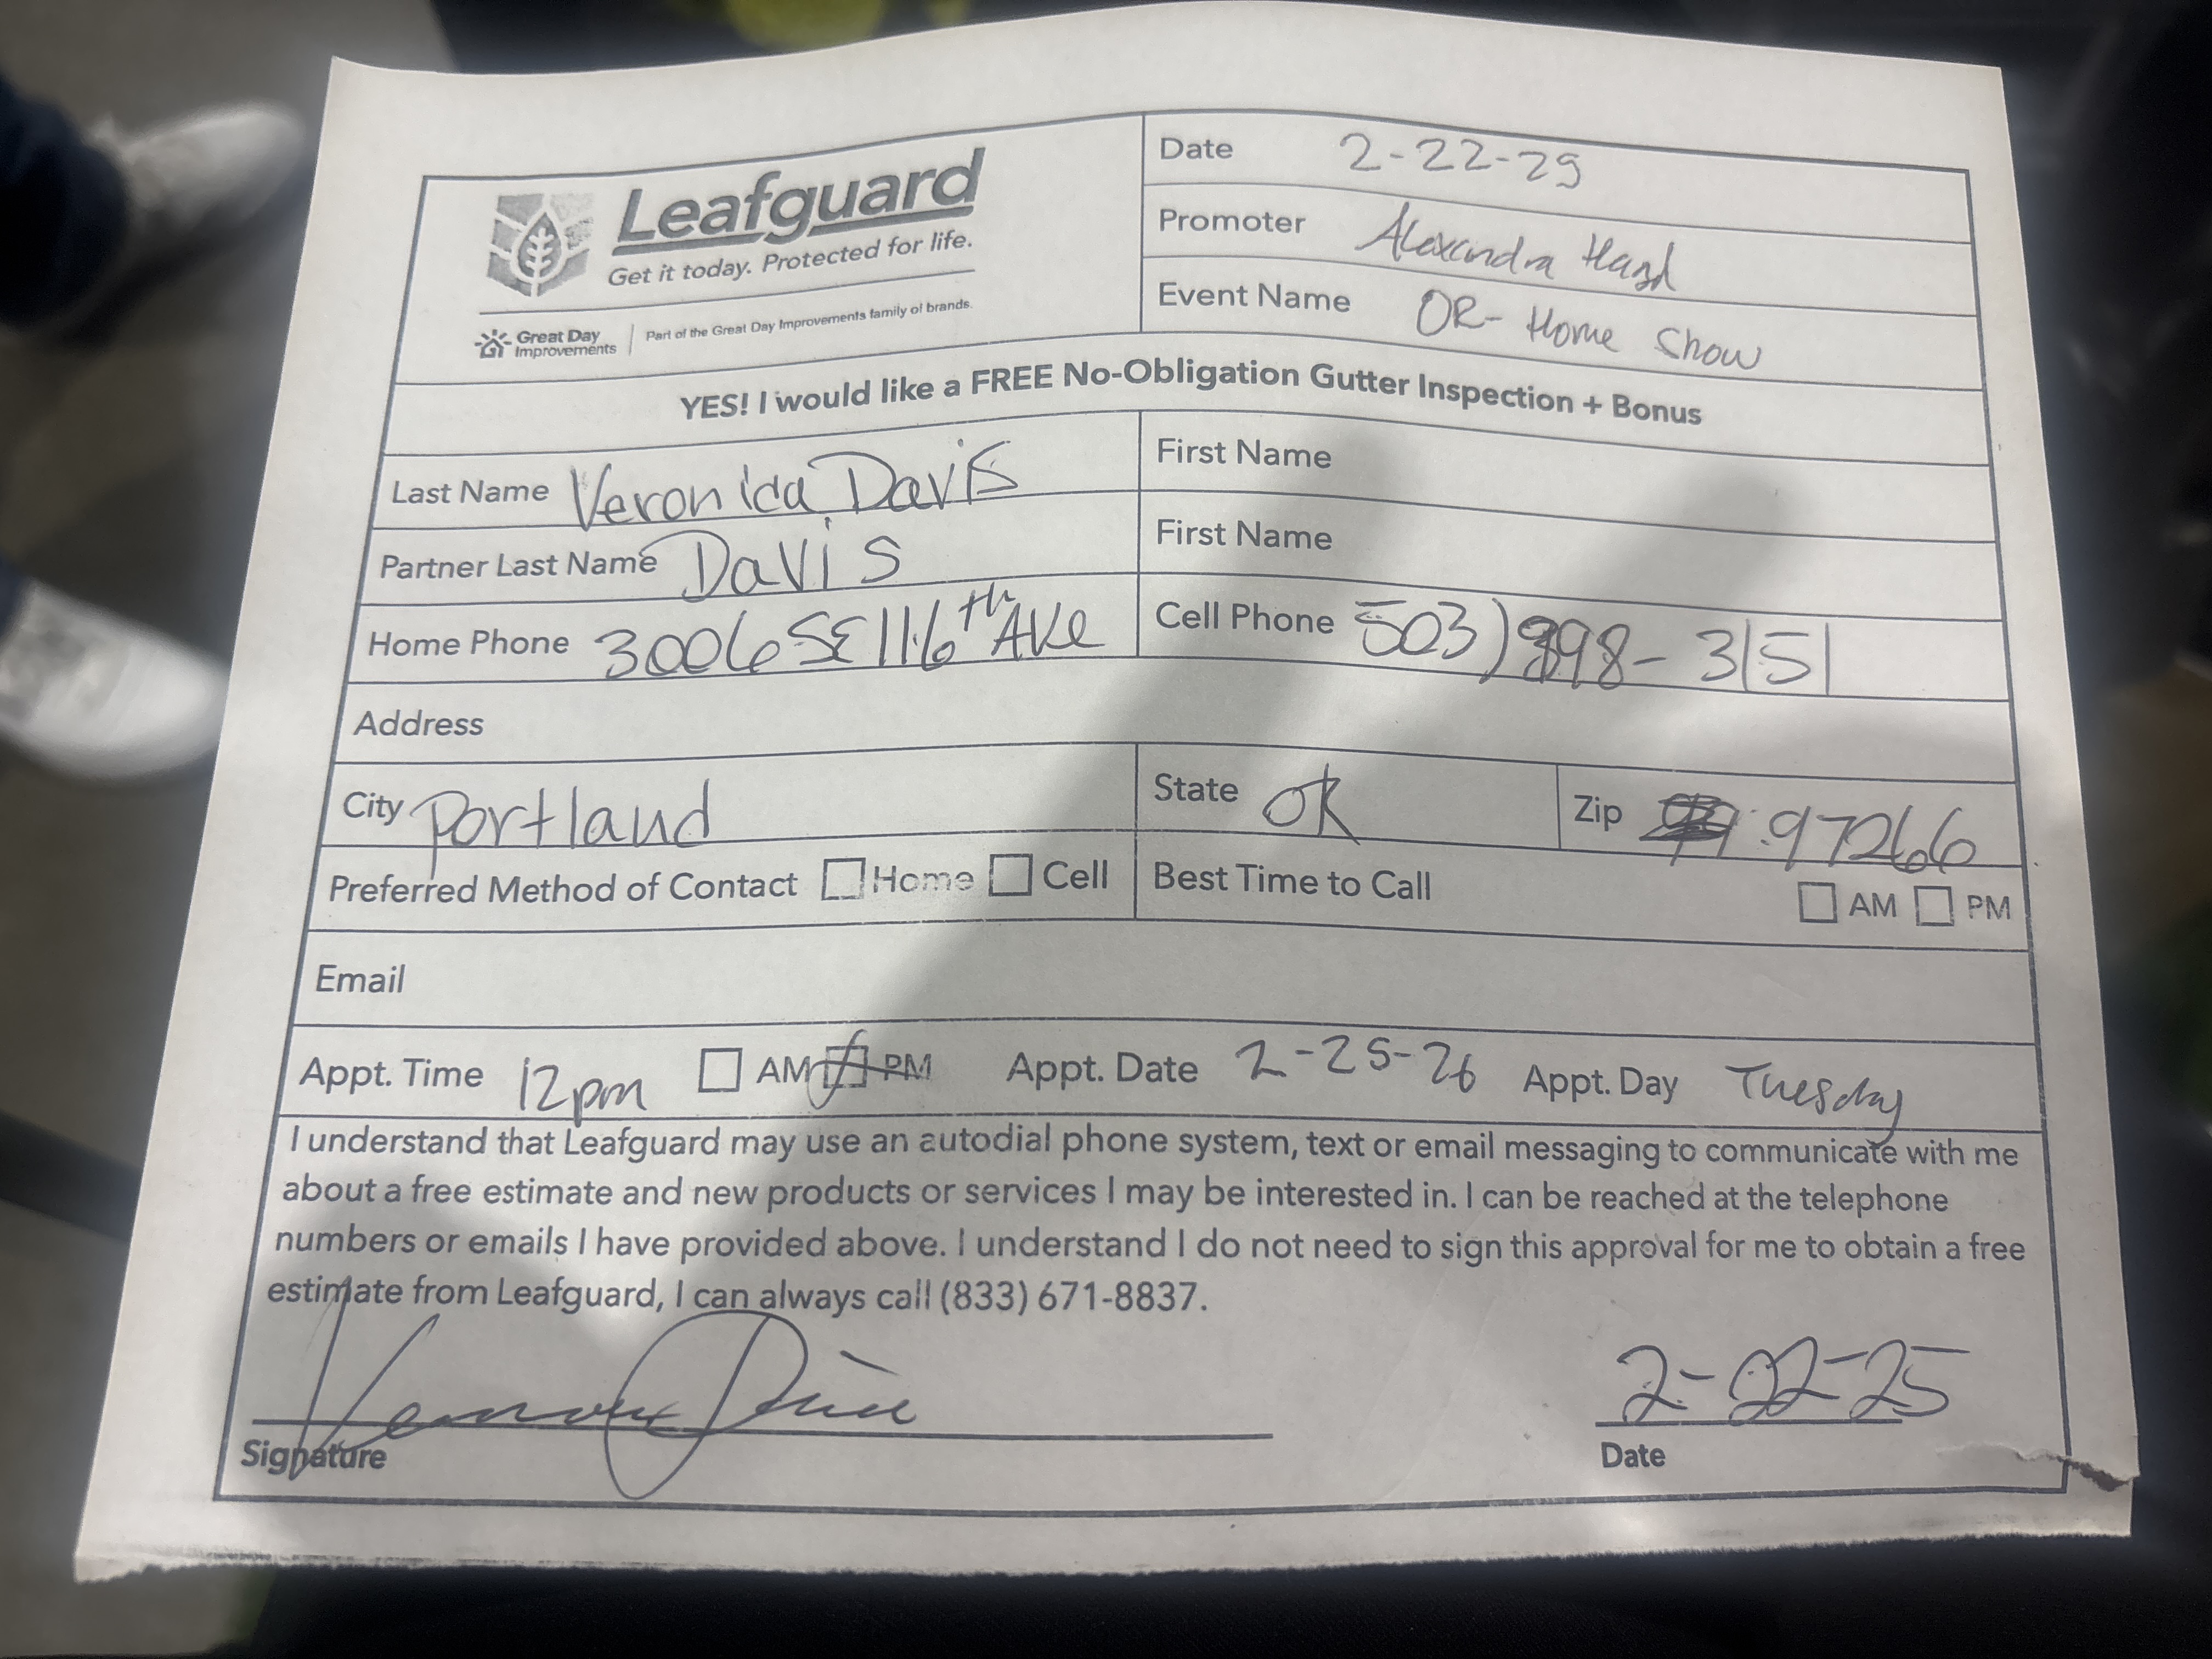 Leafguard
Get it today. Protected for life.
Great Day Improvements | Part of the Great Day Improvements family of brands.
Date 2-22-25
Promoter Alexindra Hand
Event Name OR- Home Show
YES! I would like a FREE No-Obligation Gutter Inspection + Bonus
Last Name Veronida Davis First Name
Partner Last Name Davis First Name
Home Phone 3006 SE 116th Ave Cell Phone 503) 998-3151
Address
City Portland State OR Zip 97266
Preferred Method of Contact Home Cell Best Time to Call AM PM
Email
Appt. Time 12pm AM PM Appt. Date 2-25-26 Appt. Day Tuesday
I understand that Leafguard may use an autodial phone system, text or email messaging to communicate with me
about a free estimate and new products or services I may be interested in. I can be reached at the telephone
numbers or emails I have provided above. I understand I do not need to sign this approval for me to obtain a free
estimate from Leafguard, I can always call (833) 671-8837.
2-22-25
Signature Date